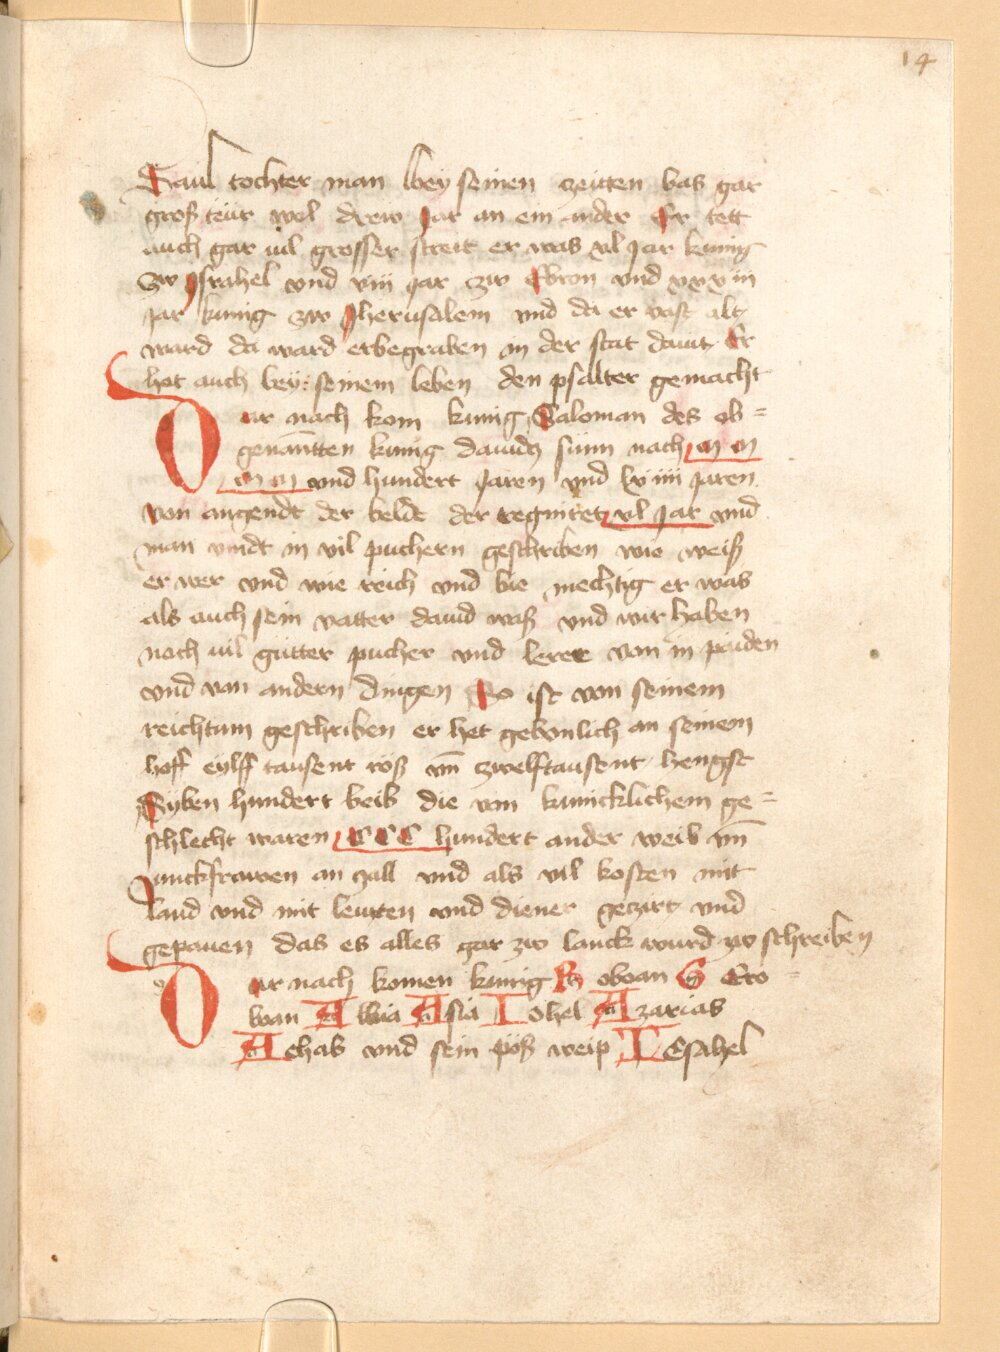 14
Saul tochter man bey seinen zeitten bas gar
groß teur wol drew Jar an ein ander Er tett
auch gar uil grosser streit er was xl Jar kunig
zw Jsrahel vnd viii Jar zw Ebron vnd xxxiii
Jar kunig zw Jherusalem vnd da er vast alt
ward da ward er begraben in der stat dauit Er
hot auch bey seinem leben den psalter gemacht
Dar nach kom kunig Saloman des ob=
genañtten kunig dauidz sunn nach m m
m m vnd hundert Jaren vnd lxiiii Jaren
von angendt der belde der regniret xl Jar vnd
man vindt in vil puchern geschriben wie weiß
er wer vnd wie reich vnd bie mechtig er was
als auch sein vatter dauid waß vnd wir haben
noch uil gutter pucher vnd lerer von in paiden
vnd von andern dingen So ist von seinem
reichtum geschriben er het gebonlich an seinem
hoff eylff tausent roß vn̄ zwelftausent hengst
Syben hundert beib die von kunicklichem ge=
schlecht waren CCC hundert ander weib vn̄
Junckfrawen an zall vnd als vil kosten mit
land vnd mit lewten vnd diener geczirt vnd
gepauen das es alles gar zw lanck wurd zw schreiben
Dar nach komen kunig Roboan Gero=
boan Abbia Asia Johel Azarias
Achab vnd sein poß weip Jesahel